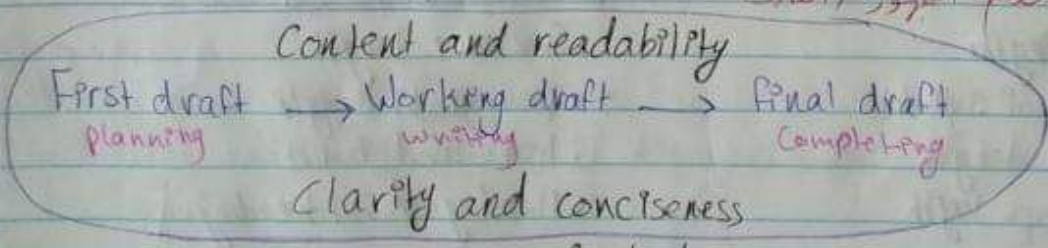 Content and readability
First draft → Working draft → final draft
planning writing Completing
Clarity and conciseness